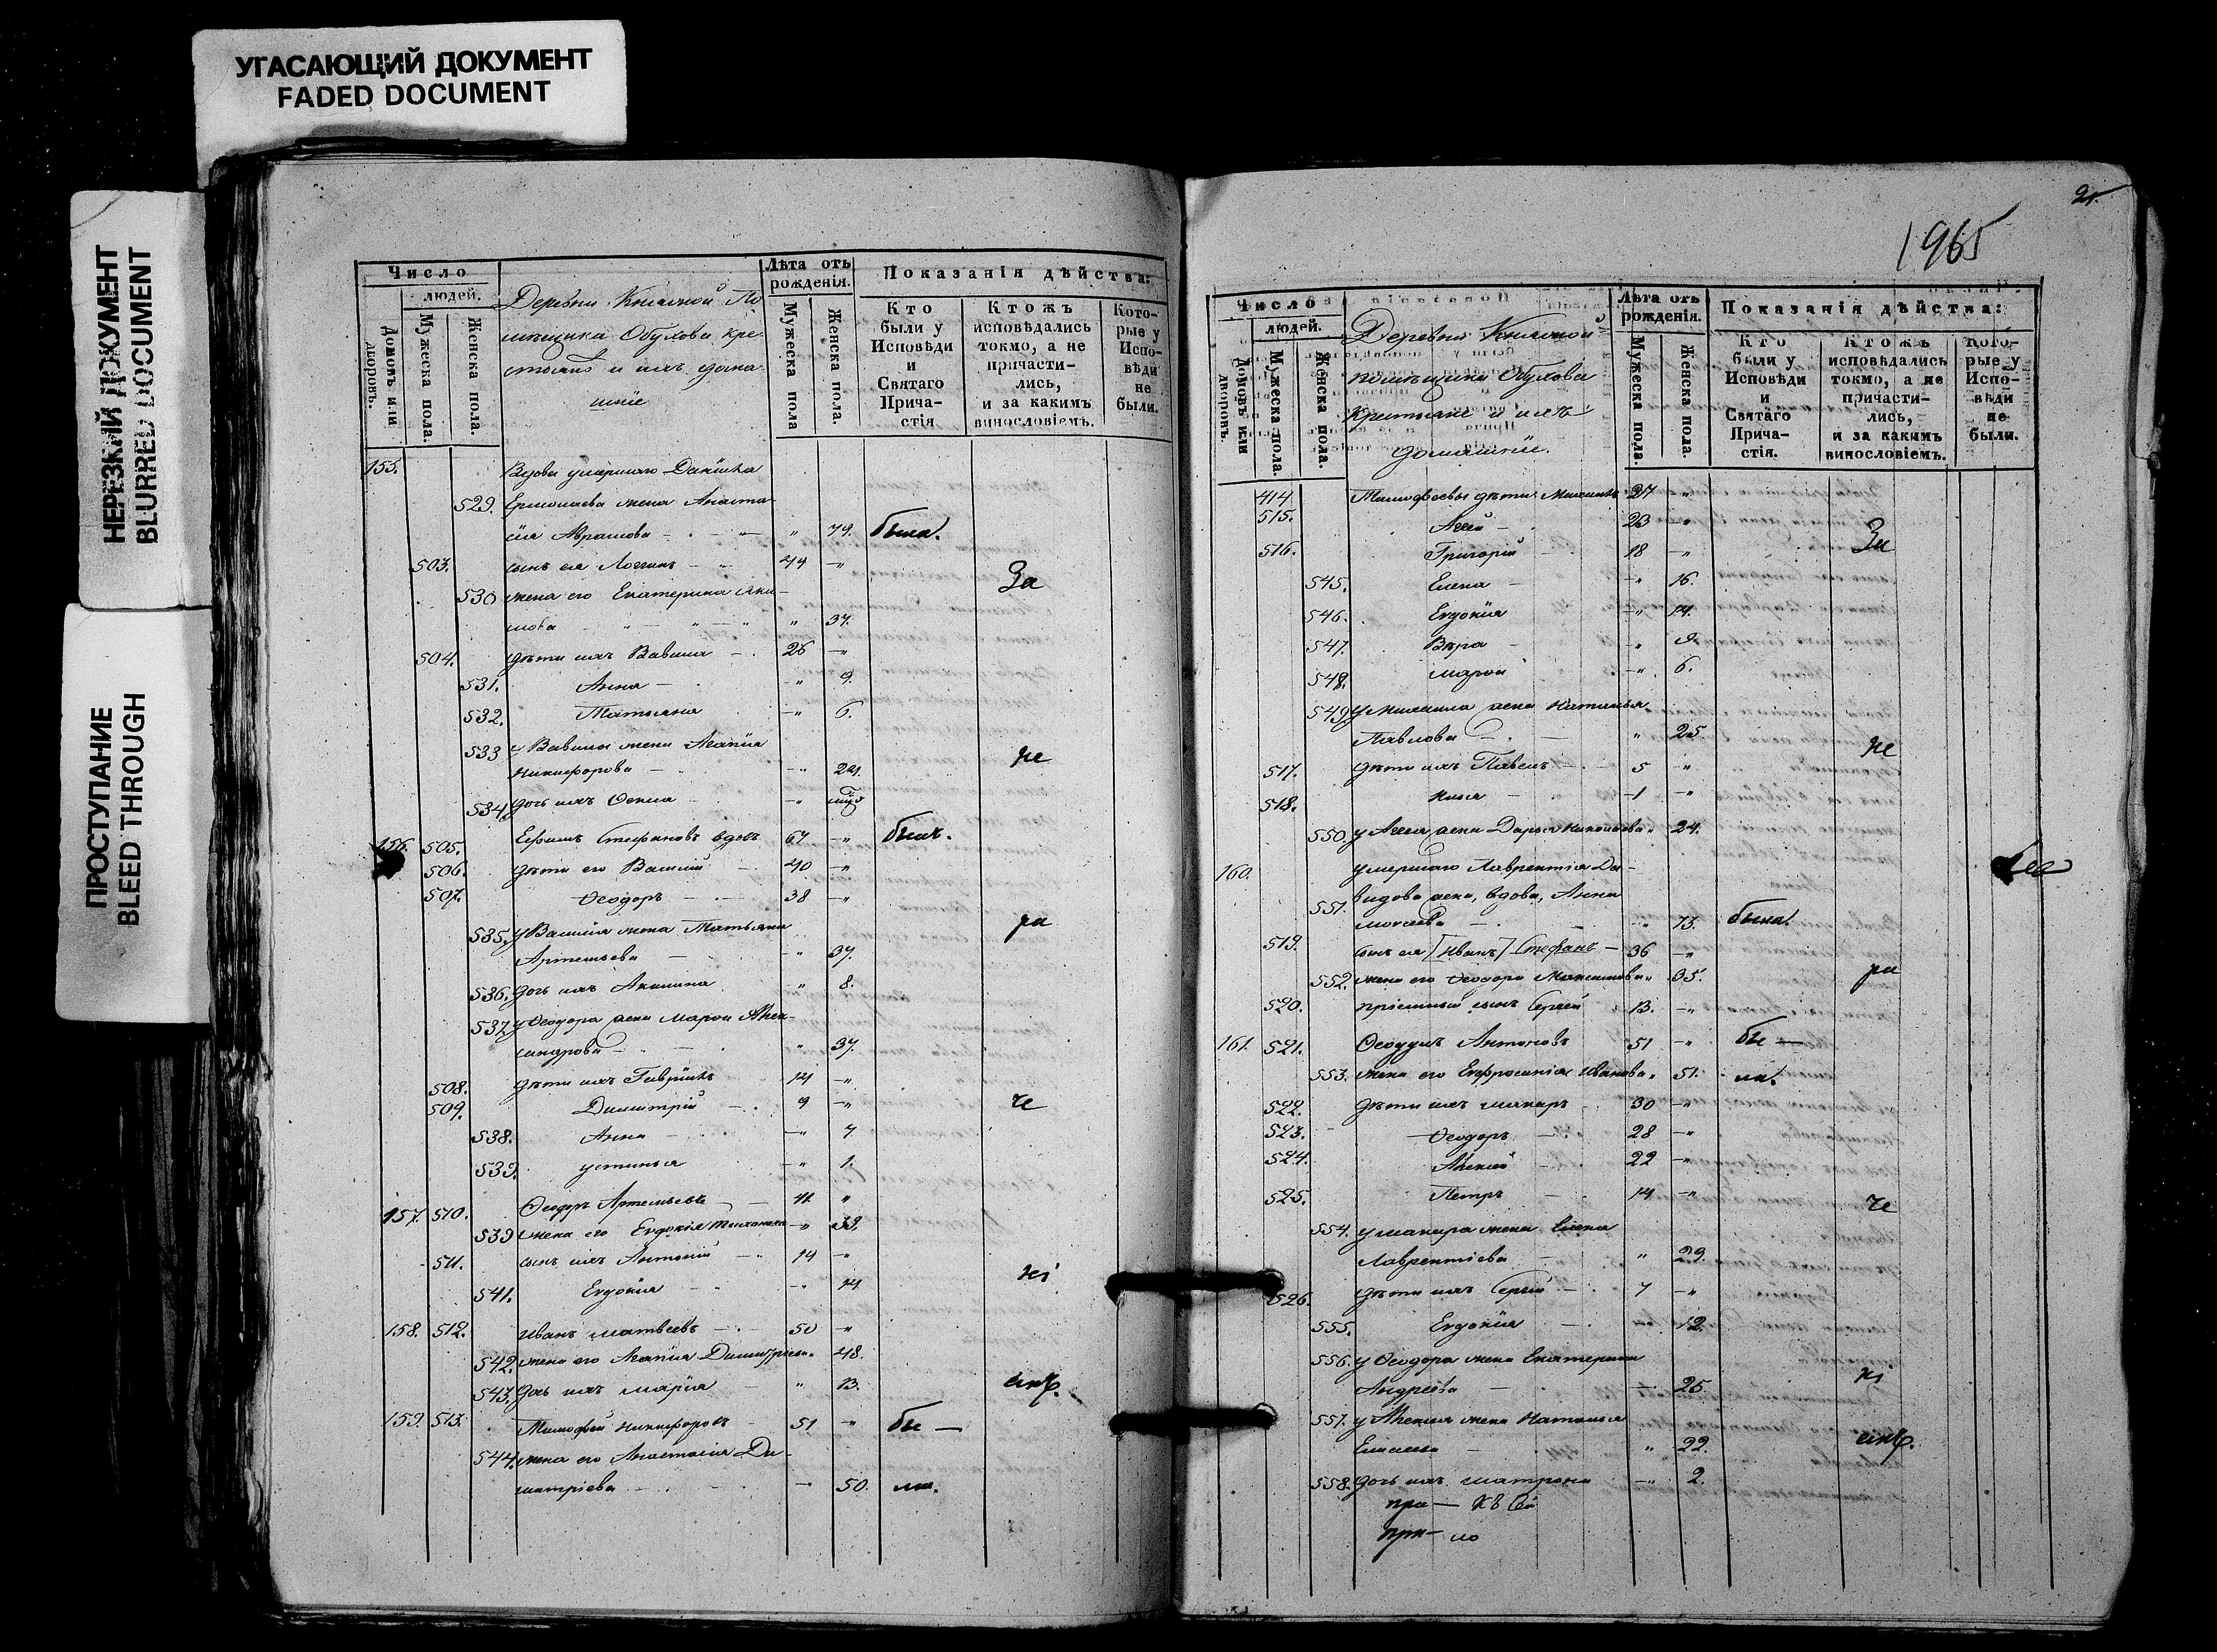 УГАСАЮЩИЙ ДОКУМЕНТ
FADED DOCUMENT
НЕРЕЗКИЙ ДОКУМЕНТ
BLURRED DOCUMENT
ПРОСТУПАНИЕ
BLEED THROUGH
Число
людей.
Домовъ или дворовъ.
Мужеска пола.
Женска пола.
Деревни Княжной По
мѣщика Обухова кре-
стьянѣ и ихъ дома
шніе
Лѣта отъ рожденія.
Мужеска пола
Женска пола.
Показанія дѣйства:
Кто были у Исповѣди и Святаго Прича- стія
Ктожъ исповѣдались токмо, а не причасти- лись, и за какимъ винословіемъ.
Кото- рые у Испо- вѣди не были.
155. Вдова умершаго Даніила
529. Ермолаева жена Анаста
сія Аврамова " 79. была.
503. сынъ ея Логгинъ 44 "
За
530 жена его Екатерина Яки-
мова " 37.
504. дѣти ихъ Вавила 26 "
531. Анна " 9.
532. Татьяна " 6.
533 у Вавилы жена Агапія
Никифорова "
не
534. дочь ихъ Ѳекла "
156. 505. Ефимъ Стефановъ вдовъ 67 " былъ.
506. дѣти его Василій 40 "
507. Ѳеодоръ 38 "
ра
535. у Василія жена Татьяна
Артемьева " 37.
536. дочь ихъ Акилина " 8.
537. у Ѳеодора жена Марѳа Алек-
сандрова " 37.
508. дѣти ихъ Гавріилъ 14 "
509. Димитрій 9 "
че
538. Анна " 7
539. Устинья " 1.
157. 510. Ѳеодоръ Артемьевъ 41. "
539 жена его Евдокія Тихонова " 39.
511. сынъ ихъ Антоній 14 "
ні
541. Евдокія " 14
158. 512. Иванъ Матвѣевъ 50 "
542. жена его Агапія Димитріева " 48.
543. дочь ихъ Марія " 13.
емъ.
159. 513. Тимофей Никифоровъ 51 " бы —
544. жена его Анастасія Ди-
митріева " 50. ли.
21.
1965
Число
людей.
Домовъ или дворовъ.
Мужеска пола.
Женска пола.
Деревни Княжной
помѣщика Обухова
Крестьяне и ихъ
домашніе.
Лѣта отъ рожденія.
Мужеска пола.
Женска пола.
Показанія дѣйства:
Кто были у Исповѣди и Святаго Прича- стія.
Ктожъ исповѣдались токмо, а не причасти- лись, и за какимъ винословіемъ.
Кото- рые у Испо- вѣди не были.
414 Тимофеевы дѣти Михаилъ 27 "
515. Аггей 23 "
За
516. Григорій 18 "
545. Елена " 16.
546. Евдокія " 14.
547. Вѣра " 9.
548. Марѳа " 6.
549. у Михаила жена Наталья
Павлова " 25.
не
517. дѣти ихъ Павелъ 5 "
518. 1 "
550. у Аггея жена Дарья Николаева " 24.
160. умершаго Лаврентія Да-
видова жена, вдова, Анна
551. Моисеева " 73. была.
519. сынъ ея [Иванъ] Стефанъ 36 "
552. жена его Ѳеодора Максимова " 35.
ра
520. пріемный сынъ Сергей 13. "
161. 521. Ѳеодулъ Антоновъ 51 " бы —
553. жена его Евфросинія Иванова " 51. ли.
522. дѣти ихъ Макаръ 30 "
523. Ѳеодоръ 28 "
524. Алексій 22 "
525. Петръ 14 "
че
554. у Макара жена Елена
Лаврентіева " 29.
526. дѣти ихъ Сергій 7 "
555. Евдокія " 12.
556. у Ѳеодора жена Екатерина
Андреева " 25.
ні
557. у Алексія жена Наталья
Елисеева " 22.
емъ.
558. дочь ихъ Матрона " 2.